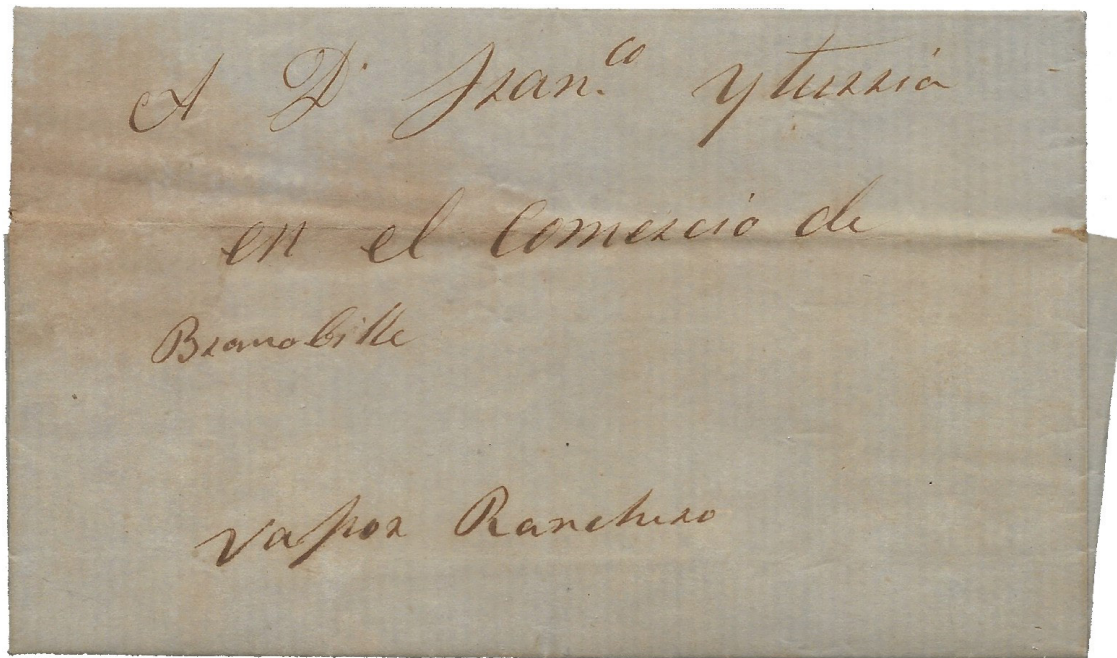 A D. Fran.co Yturria
en el Comercio de
Branobille
Vapor Ranchero